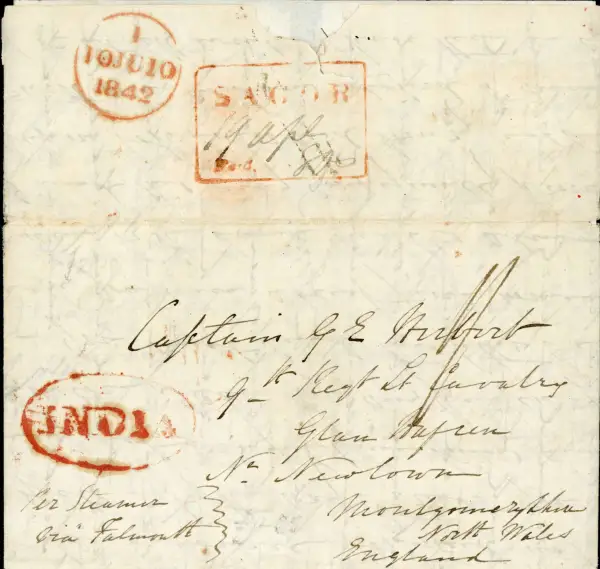 1
10JU10
1842
SAGOR
19 Apl
Paid.
Captain G E Herbert
9th Regt Lt Cavalry
Glan Hafren
INDIA
Nr Newtown
Per Steamer
Montgomeryshire
via Falmouth
North Wales
England